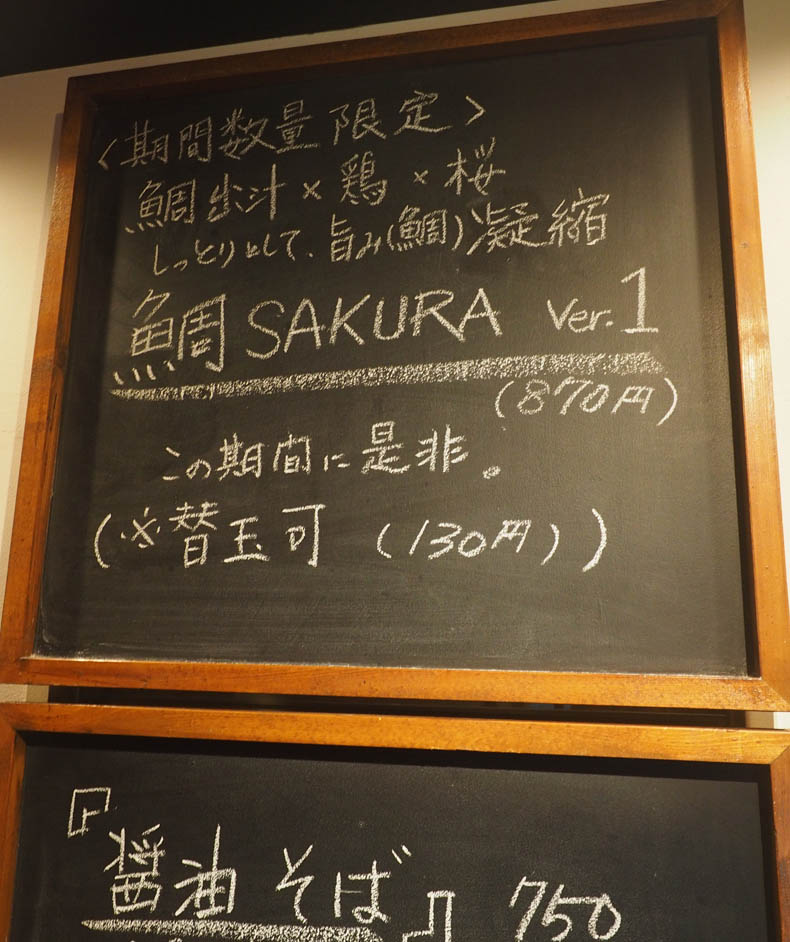 <期間数量限定>
鯛出汁×鶏×桜
しっとりとして、旨み(鯛)凝縮
鯛SAKURA Ver.1
(870円)
この期間に是非。
(※替玉可(130円))
『醤油そば』750